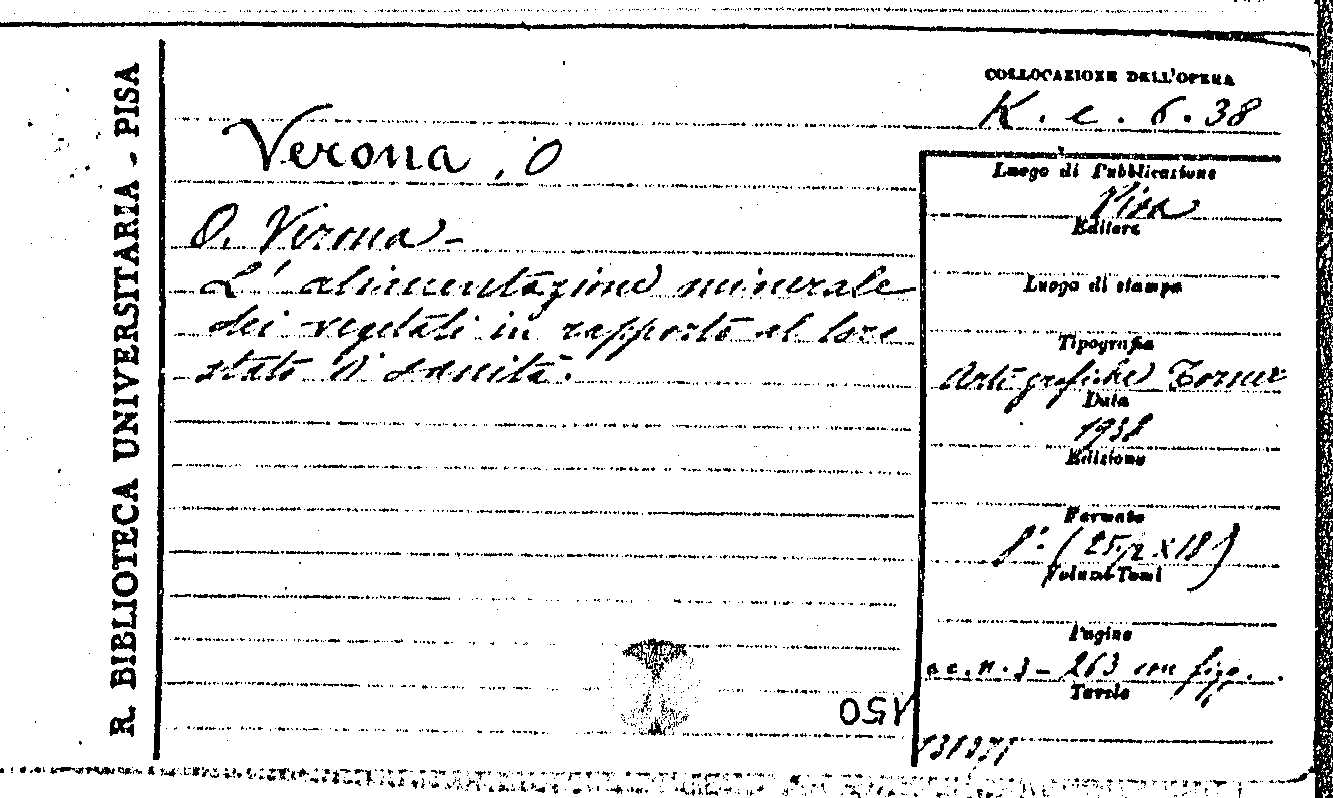 R. BIBLIOTECA UNIVERSITARIA - PISA
COLLOCAZIONE DELL'OPERA
K. c. 6. 38
Verona, O
O. Verona -
L'alimentazione minerale
dei vegetali in rapporto al loro
stato di sanità.
Luogo di Pubblicazione
Pisa
Editore
Luogo di stampa
Tipografia
Arti grafiche Tornar
Data
1938
Edizione
Formato
8º (25½ x 18)
Volumi-Tomi
Pagine
cc. n. 3 - 263 con figg.
Tavole
150